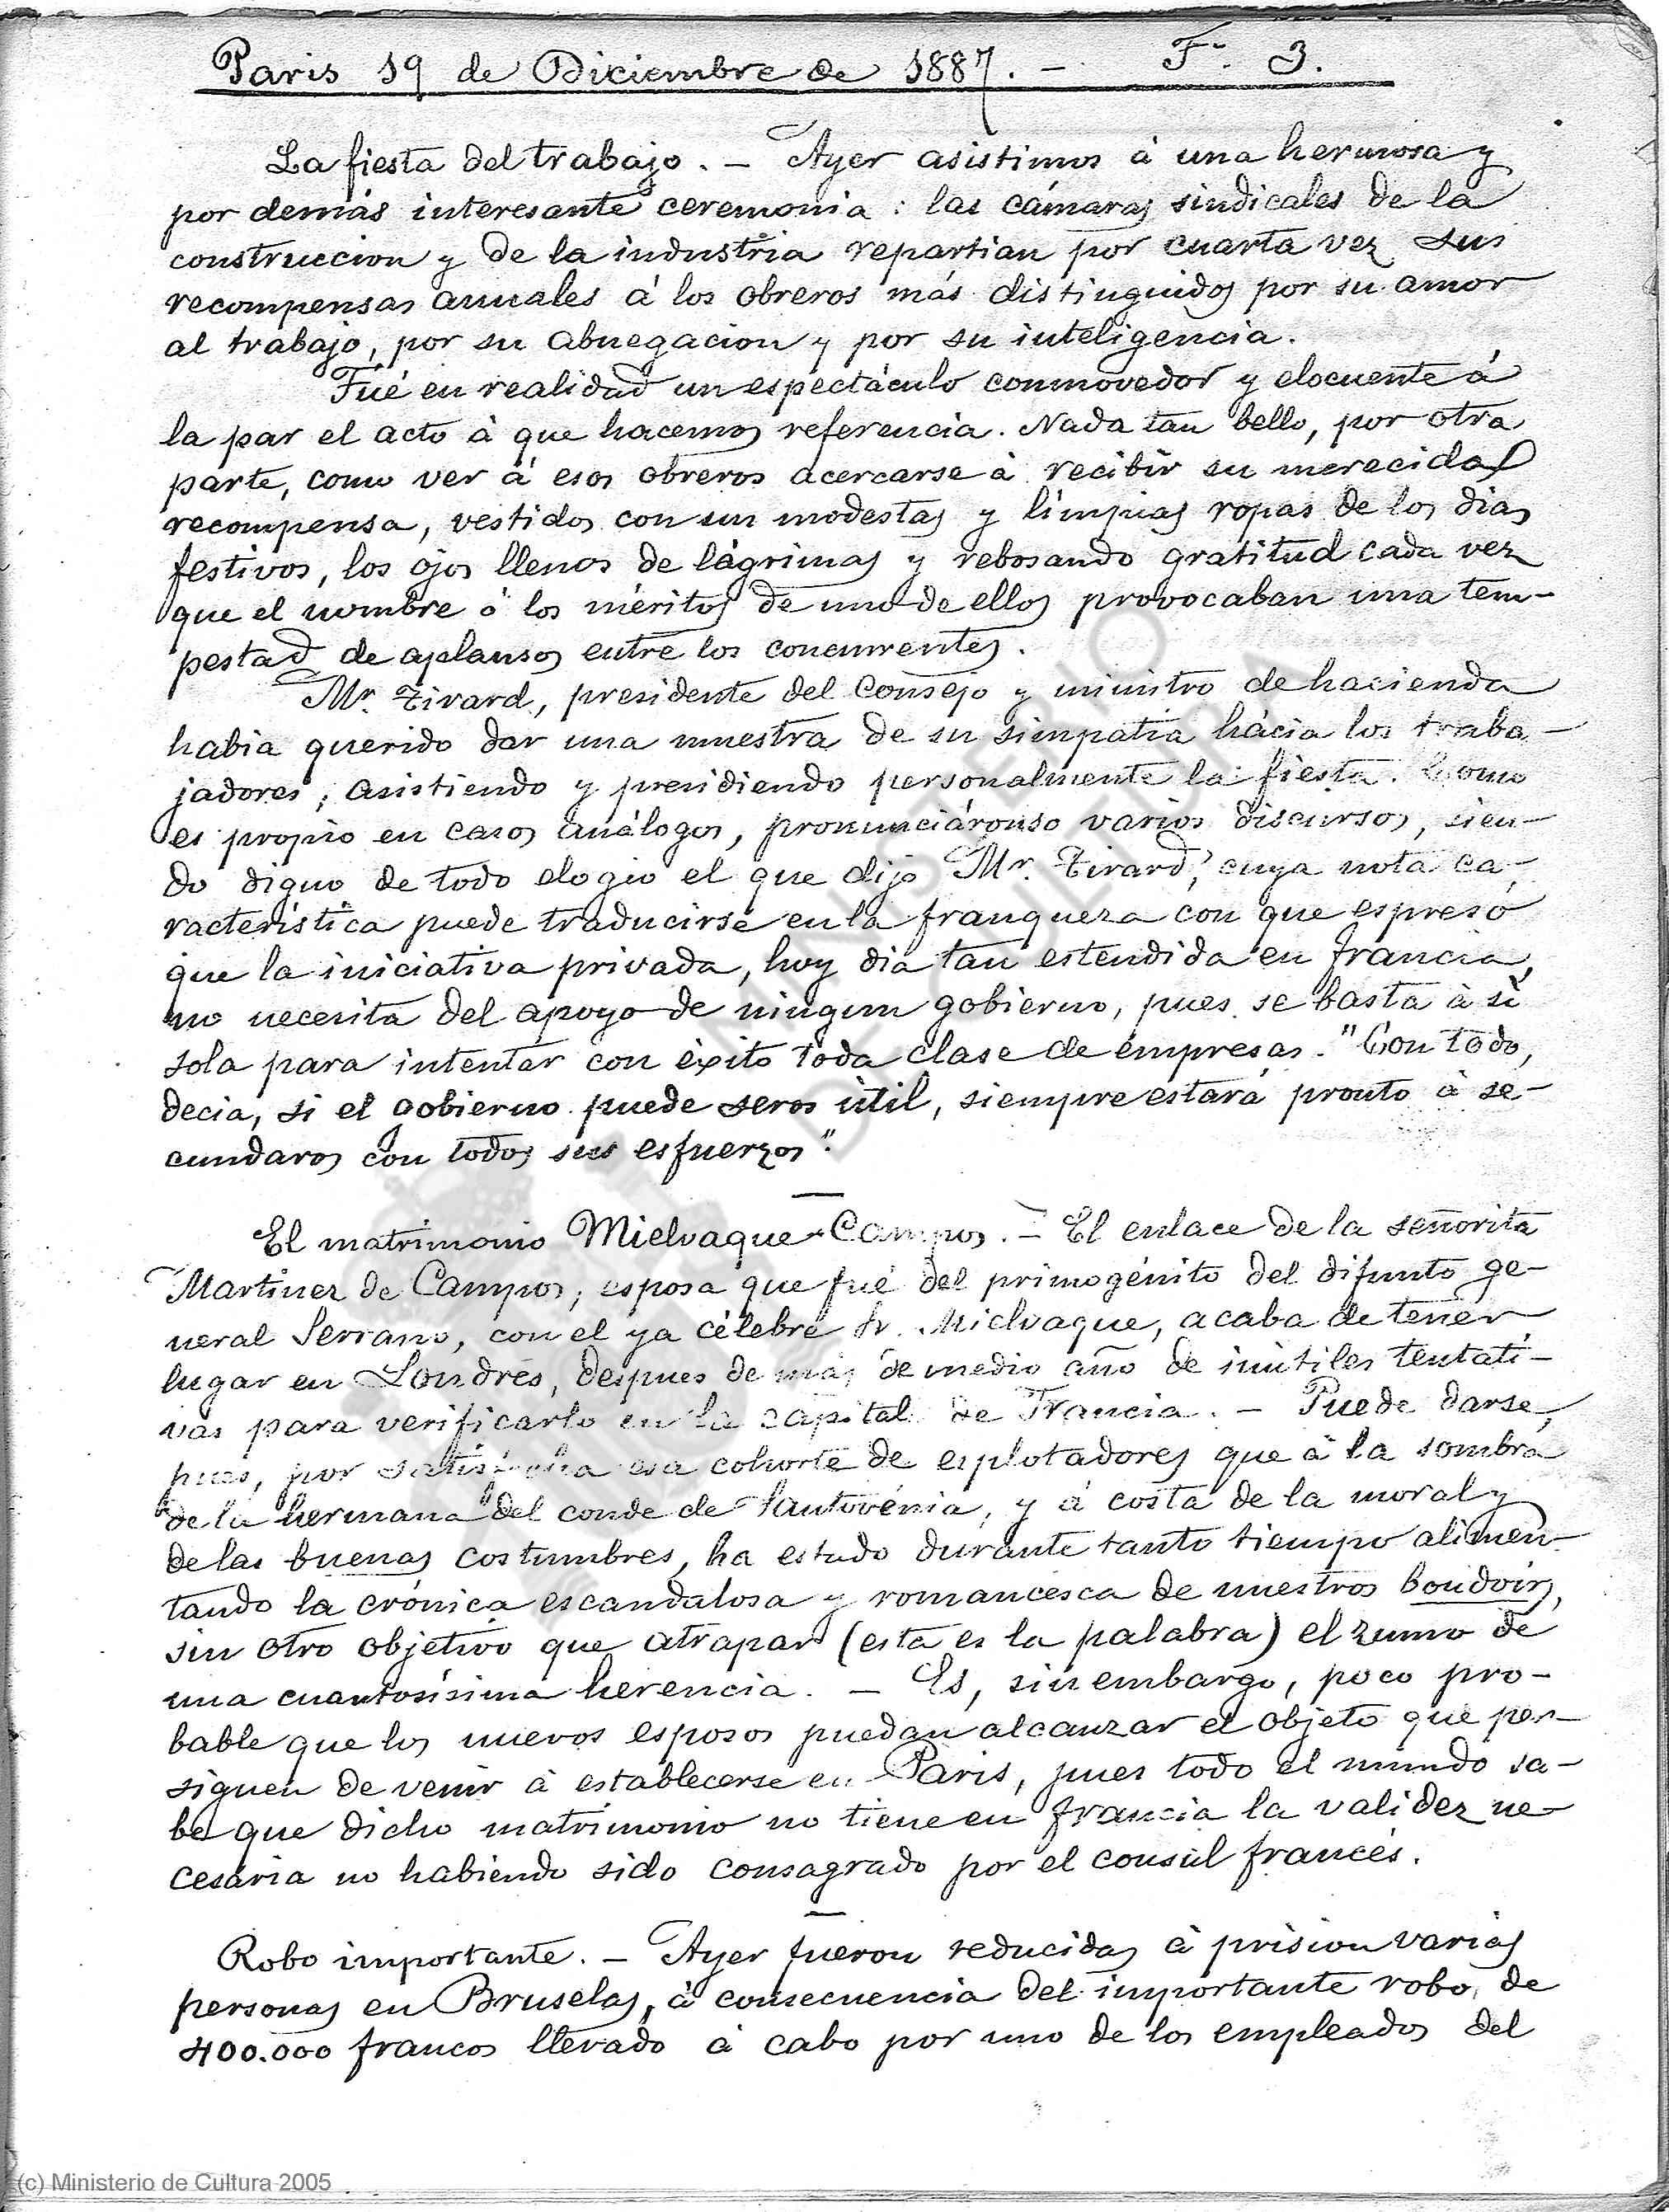 Paris 19 de Diciembre de 1887. — Fº 3.
La fiesta del trabajo. — Ayer asistimos á una hermosa y
por demás interesante ceremonia: las cámaras sindicales de la
construccion y de la industria repartian por cuarta vez sus
recompensas anuales á los obreros más distinguidos por su amor
al trabajo, por su abnegacion y por su inteligencia.
Fué en realidad un espectáculo conmovedor y elocuente á
la par el acto á que hacemos referencia. Nada tan bello, por otra
parte, como ver á esos obreros acercarse á recibir su merecida
recompensa, vestidos con sus modestas y limpias ropas de los dias
festivos, los ojos llenos de lágrimas y rebosando gratitud cada vez
que el nombre ó los méritos de uno de ellos provocaban una tem-
pestad de aplausos entre los concurrentes.
Mr. Tirard, presidente del Consejo y ministro de hacienda
habia querido dar una muestra de su simpatia hácia los traba-
jadores, asistiendo y presidiendo personalmente la fiesta. Como
es propio en casos análogos, pronunciáronse varios discursos, sien-
do digno de todo elogio el que dijo Mr. Tirard, cuya nota ca-
racterística puede traducirse en la franqueza con que espresó
que la iniciativa privada, hoy dia tan estendida en francia,
no necesita del apoyo de ningun gobierno, pues se basta á sí
sola para intentar con éxito toda clase de empresas. "Con todo,
decia, si el gobierno puede seros útil, siempre estará pronto á se-
cundaros con todos sus esfuerzos".
El matrimonio Mielvaque-Campos. — El enlace de la señorita
Martinez de Campos, esposa que fué del primogénito del difunto ge-
neral Serrano, con el ya célebre Sr. Mielvaque, acaba de tener
lugar en Londres, despues de más de medio año de inútiles tentati-
vas para verificarlo en la capital de Francia. — Puede darse,
pues, por satisfecha esa cohorte de esplotadores que á la sombra
"de la hermana" del conde de Santovénia, y á costa de la moral y
de las buenas costumbres, ha estado durante tanto tiempo alimen-
tando la crónica escandalosa y romancesca de nuestros boudoirs,
sin otro objetivo que atrapar (esta es la palabra) el zumo de
una cuantosísima herencia. — Es, sin embargo, poco pro-
bable que los nuevos esposos puedan alcanzar el objeto que per-
siguen de venir á establecerse en Paris, pues todo el mundo sa-
be que dicho matrimonio no tiene en francia la validez ne-
cesaria no habiendo sido consagrado por el consul francés.
Robo importante. — Ayer fueron reducidas á prision varias
personas en Bruselas, á consecuencia del importante robo de
400.000 francos llevado á cabo por uno de los empleados del
MINISTERIO
DE CULTURA
(c) Ministerio de Cultura 2005